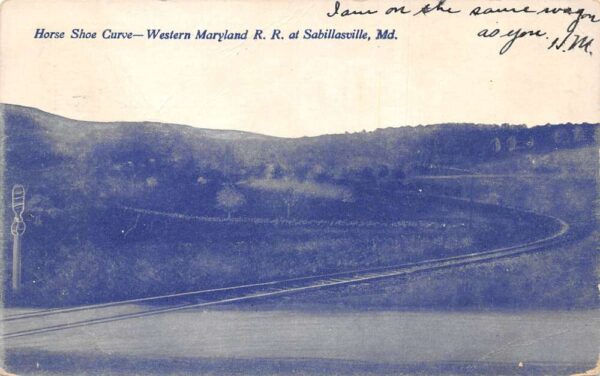 I am on the same wagon
as you. H.M.
Horse Shoe Curve—Western Maryland R. R. at Sabillasville, Md.